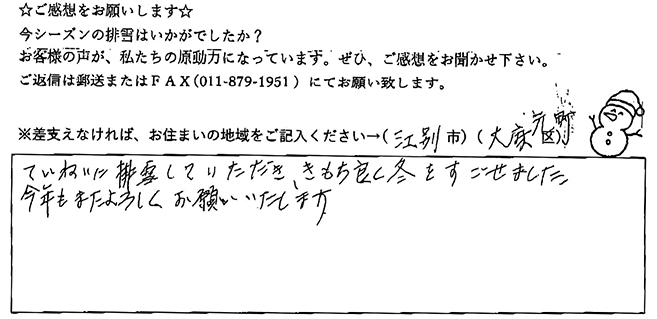 ☆ご感想をお願いします☆
今シーズンの排雪はいかがでしたか?
お客様の声が、私たちの原動力になっています。ぜひ、ご感想をお聞かせ下さい。
ご返信は郵送またはFAX(011-879-1951)にてお願い致します。
※差支えなければ、お住まいの地域をご記入ください→(江別市)(大麻元町区)
ていねいに排雪していただき、きもち良く冬をすごせました。
今年もまたよろしくお願いいたします